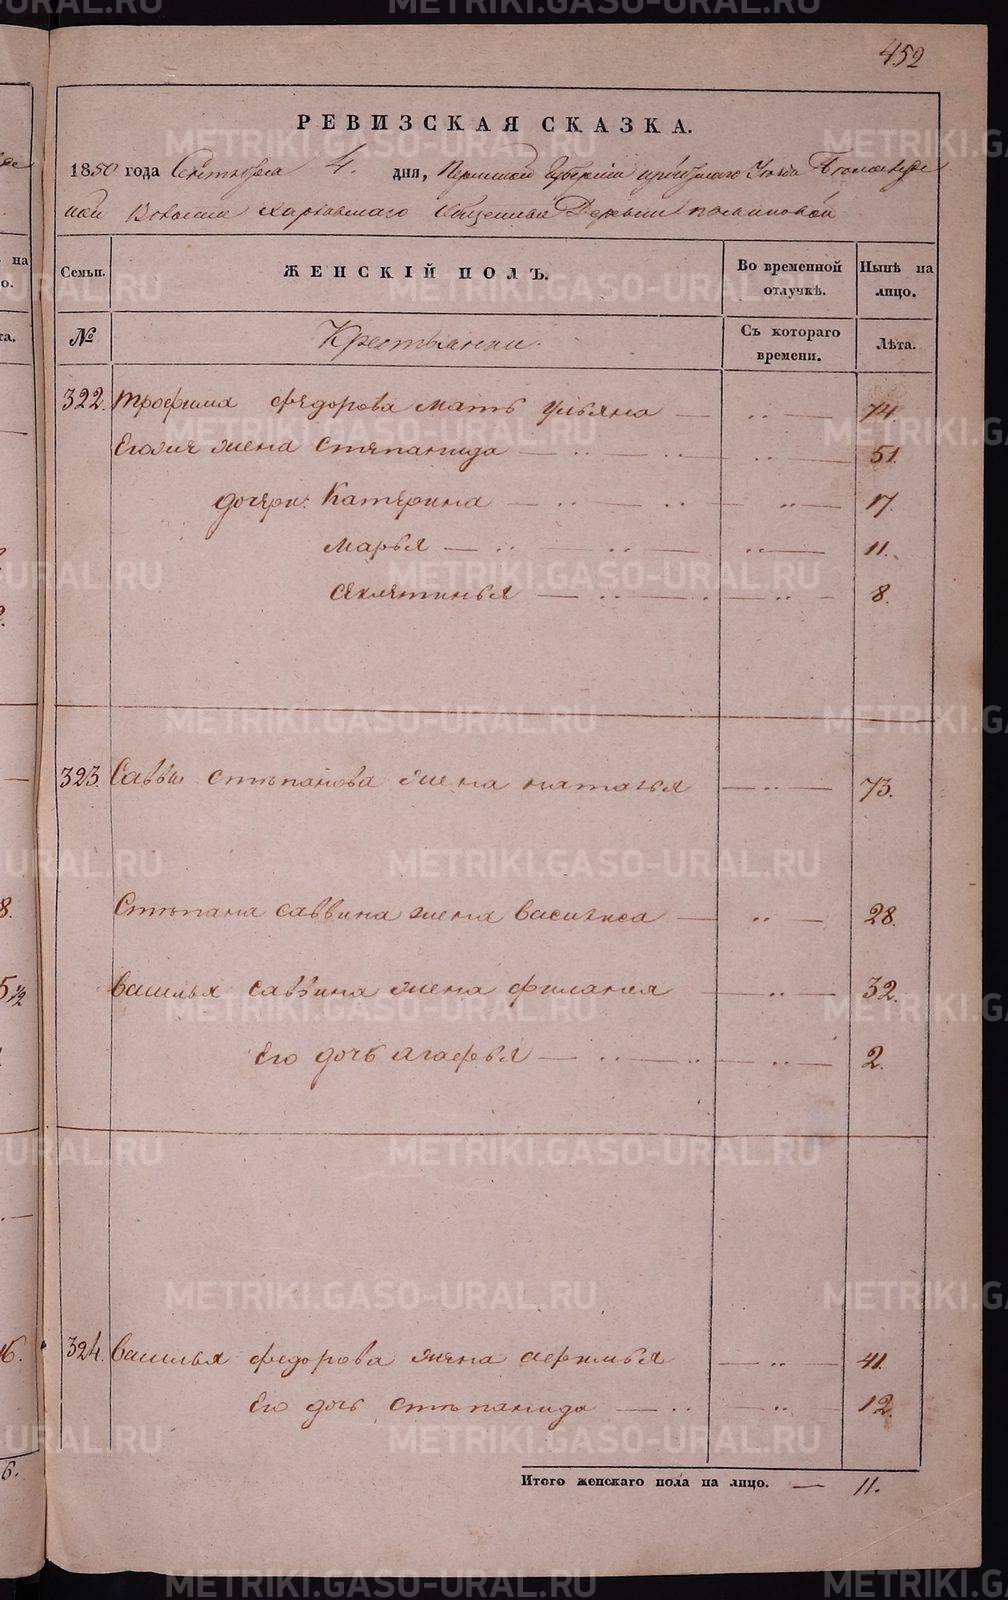 452
РЕВИЗСКАЯ СКАЗКА.
1850 года Сентября 4. дня, Пермской Губернии Уезда
Волости Харловскаго Деревни
Семьи. ЖЕНСКІЙ ПОЛЪ. Во временной отлучкѣ. Нынѣ на лицо.
№ Крестьянки. Съ котораго времени. Лѣта.
322. трофима федорова мать ульяна — .. — 74
Его же жена степанида — .. — .. — 51.
дочери: Катерина — .. — .. — 17.
марья — .. — .. — 11.
секлетинья — .. — . — 8.
323. Саввы степанова жена наталья — .. — 73.
Степана саввина жена василиса — .. — 28.
Василья саввина жена — .. — 32.
Его дочь агафья — .. — .. — 2.
324. Василья федорова жена афимья — .. — 41.
Его дочь степанида — .. — .. — 12.
Итого женскаго пола на лицо. — 11.
на
о.
та.
8.
5 ½
16.
6.
METRIKI.GASO-URAL.RU